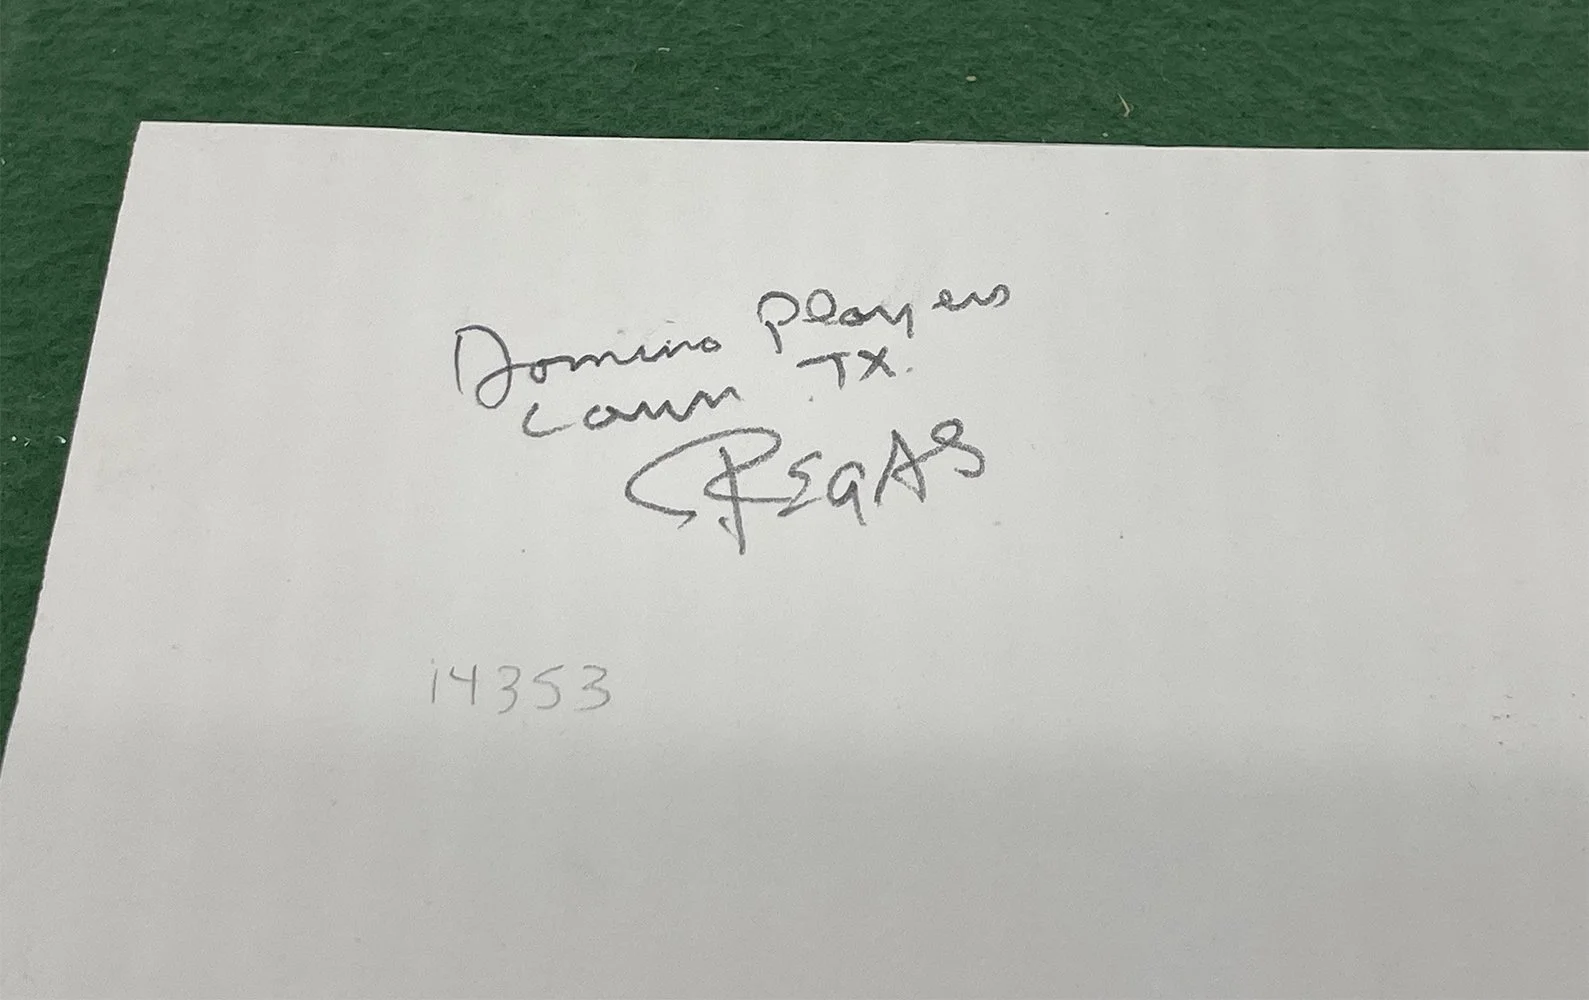 Domino Players
Lawn TX.
REGAS
14353